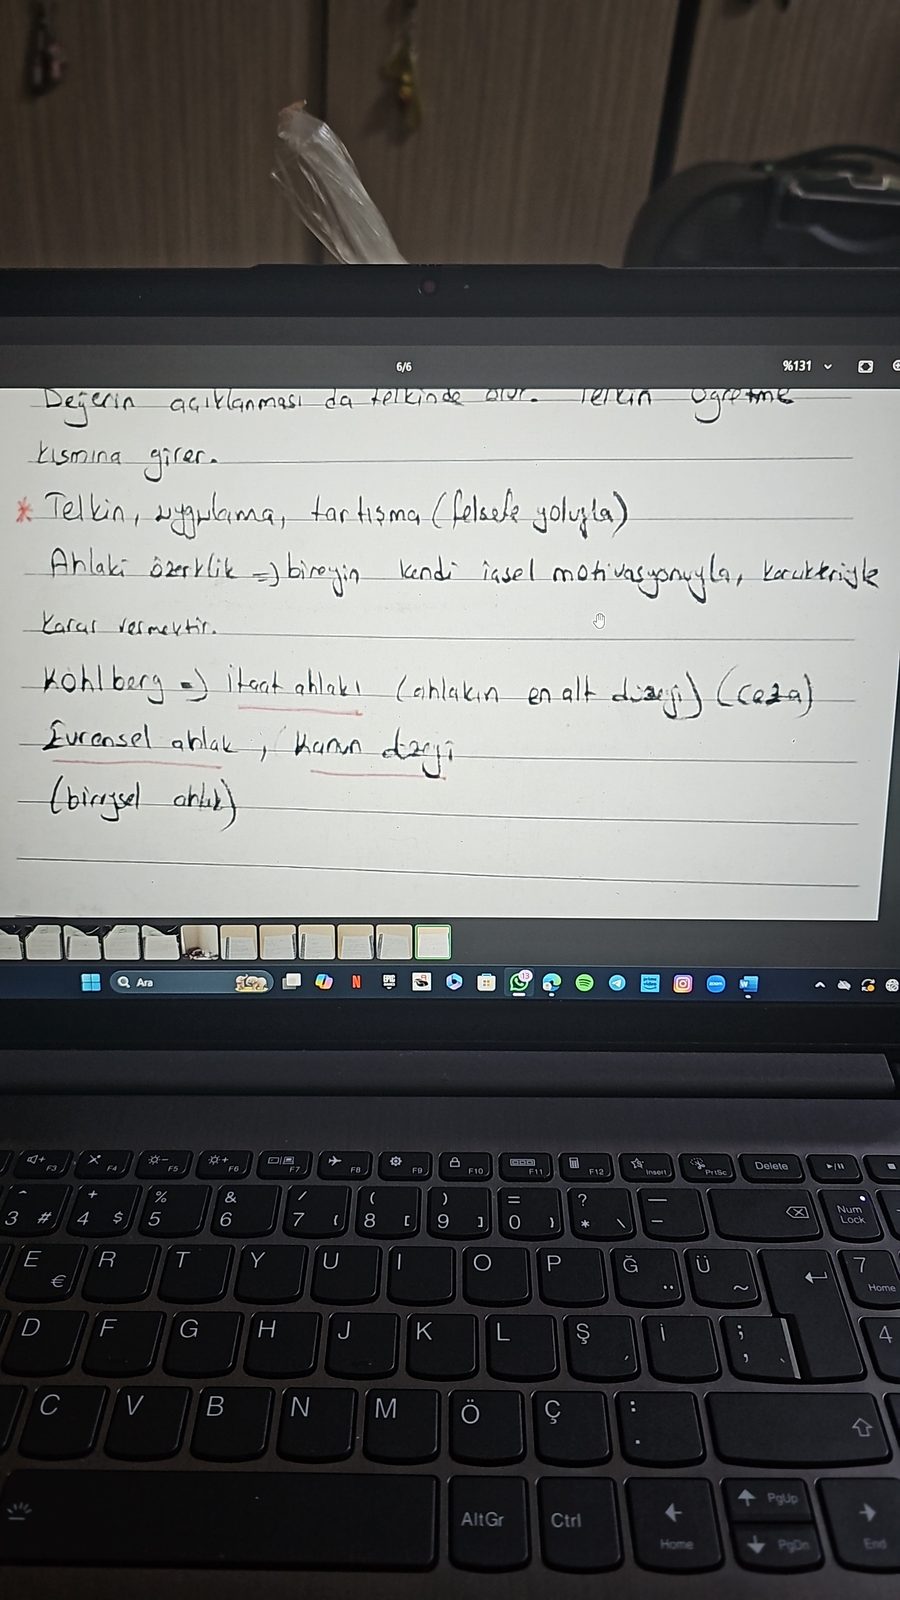 6/6
%131
Değerin açıklanması da telkinde olur. Telkin öğretme
kısmına girer.
* Telkin, uygulama, tartışma (felsefe yoluyla)
Ahlaki özerklik => bireyin kendi içsel motivasyonuyla, karakteriyle
karar vermektir.
Kohlberg => itaat ahlakı (ahlakın en alt düzeyi) (ceza)
Evrensel ahlak, kanun düzeyi
(bireysel ahlak)
Ara
13
F3 F4 F5 F6 F7 F8 F9 F10 F11 F12 Insert PrtSc Delete
^ + % & / ( ) = ? —
3 # 4 $ 5 6 7 { 8 [ 9 ] 0 } * \ - Num Lock
E € R T Y U I O P Ğ ¨ Ü ~ 7 Home
D F G H J K L Ş ´ İ ; , ` 4
C V B N M Ö Ç : .
AltGr Ctrl Home PgUp PgDn End